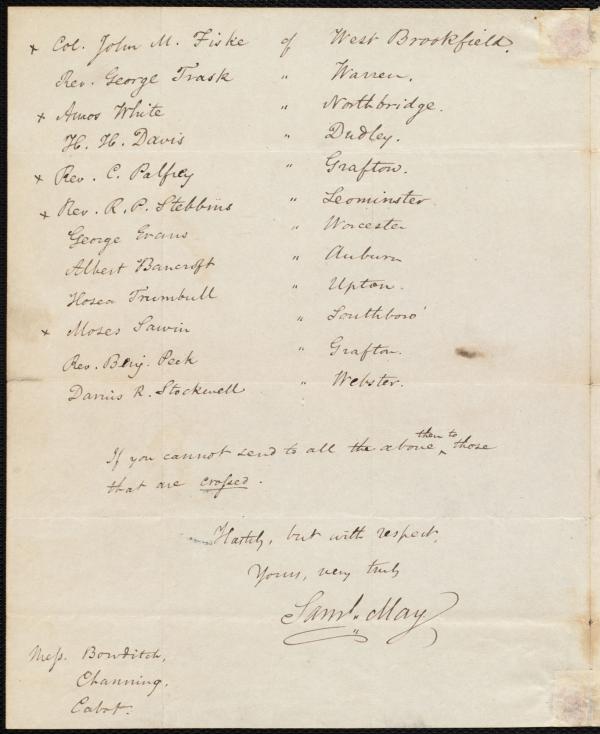 x Col. John M. Fiske of West Brookfield.
Rev. George Trask " Warren.
x Amos White " Northbridge.
H. H. Davis " Dudley.
x Rev. C. Palfrey " Grafton.
x Rev. R. P. Stebbins " Leominster
George Evans " Worcester
Albert Bancroft " Auburn
Hosea Trumbull " Upton.
x Moses Sawin " Southboro'
Rev. Benj. Peck " Grafton.
Darius R. Stockwell " Webster.
If you cannot send to all the above, then to those
that are crossed.
Hastily, but with respect,
Yours, very truly
Saml. May
Mess. Bowditch,
Channing.
Cabot.